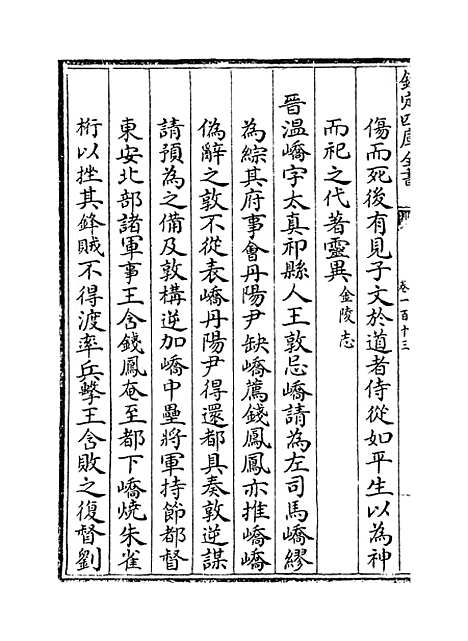 欽定四庫全書
卷一百十三
傷而死後有見子文於道者侍從如平生以為神
而祀之代著靈異金陵志
晉溫嶠字太真祁縣人王敦忌嶠請為左司馬嶠繆
為綜其府事會丹陽尹缺嶠薦錢鳳鳳亦推嶠嶠
偽辭之敦不從表嶠丹陽尹得還都具奏敦逆謀
請預為之備及敦構逆加嶠中壘將軍持節都督
東安北部諸軍事王含錢鳳奄至都下嶠燒朱雀
桁以挫其鋒賊不得渡率兵擊王含敗之復督劉